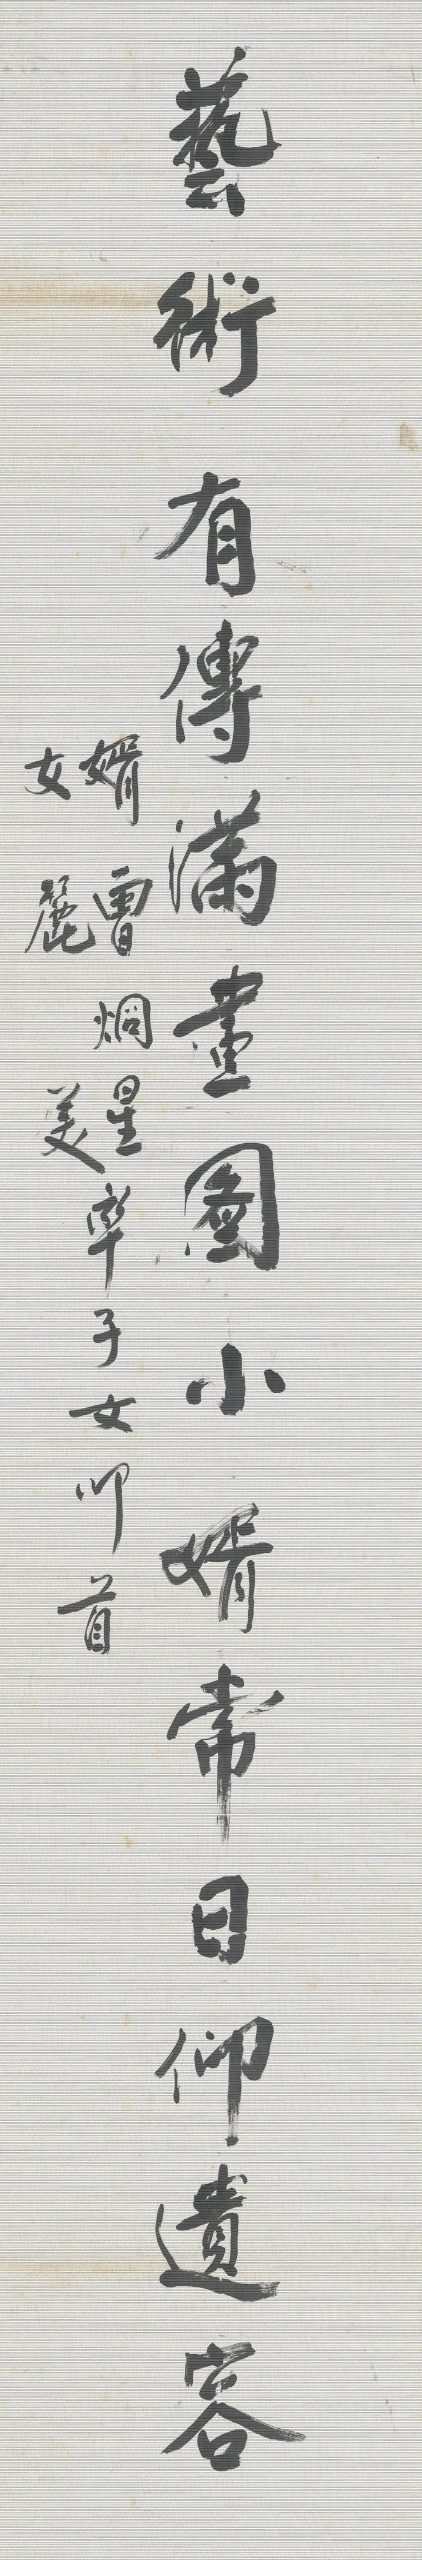 藝術有傳滿畫圖小婿常日仰遺容
婿炯星率子女叩首
女麗美